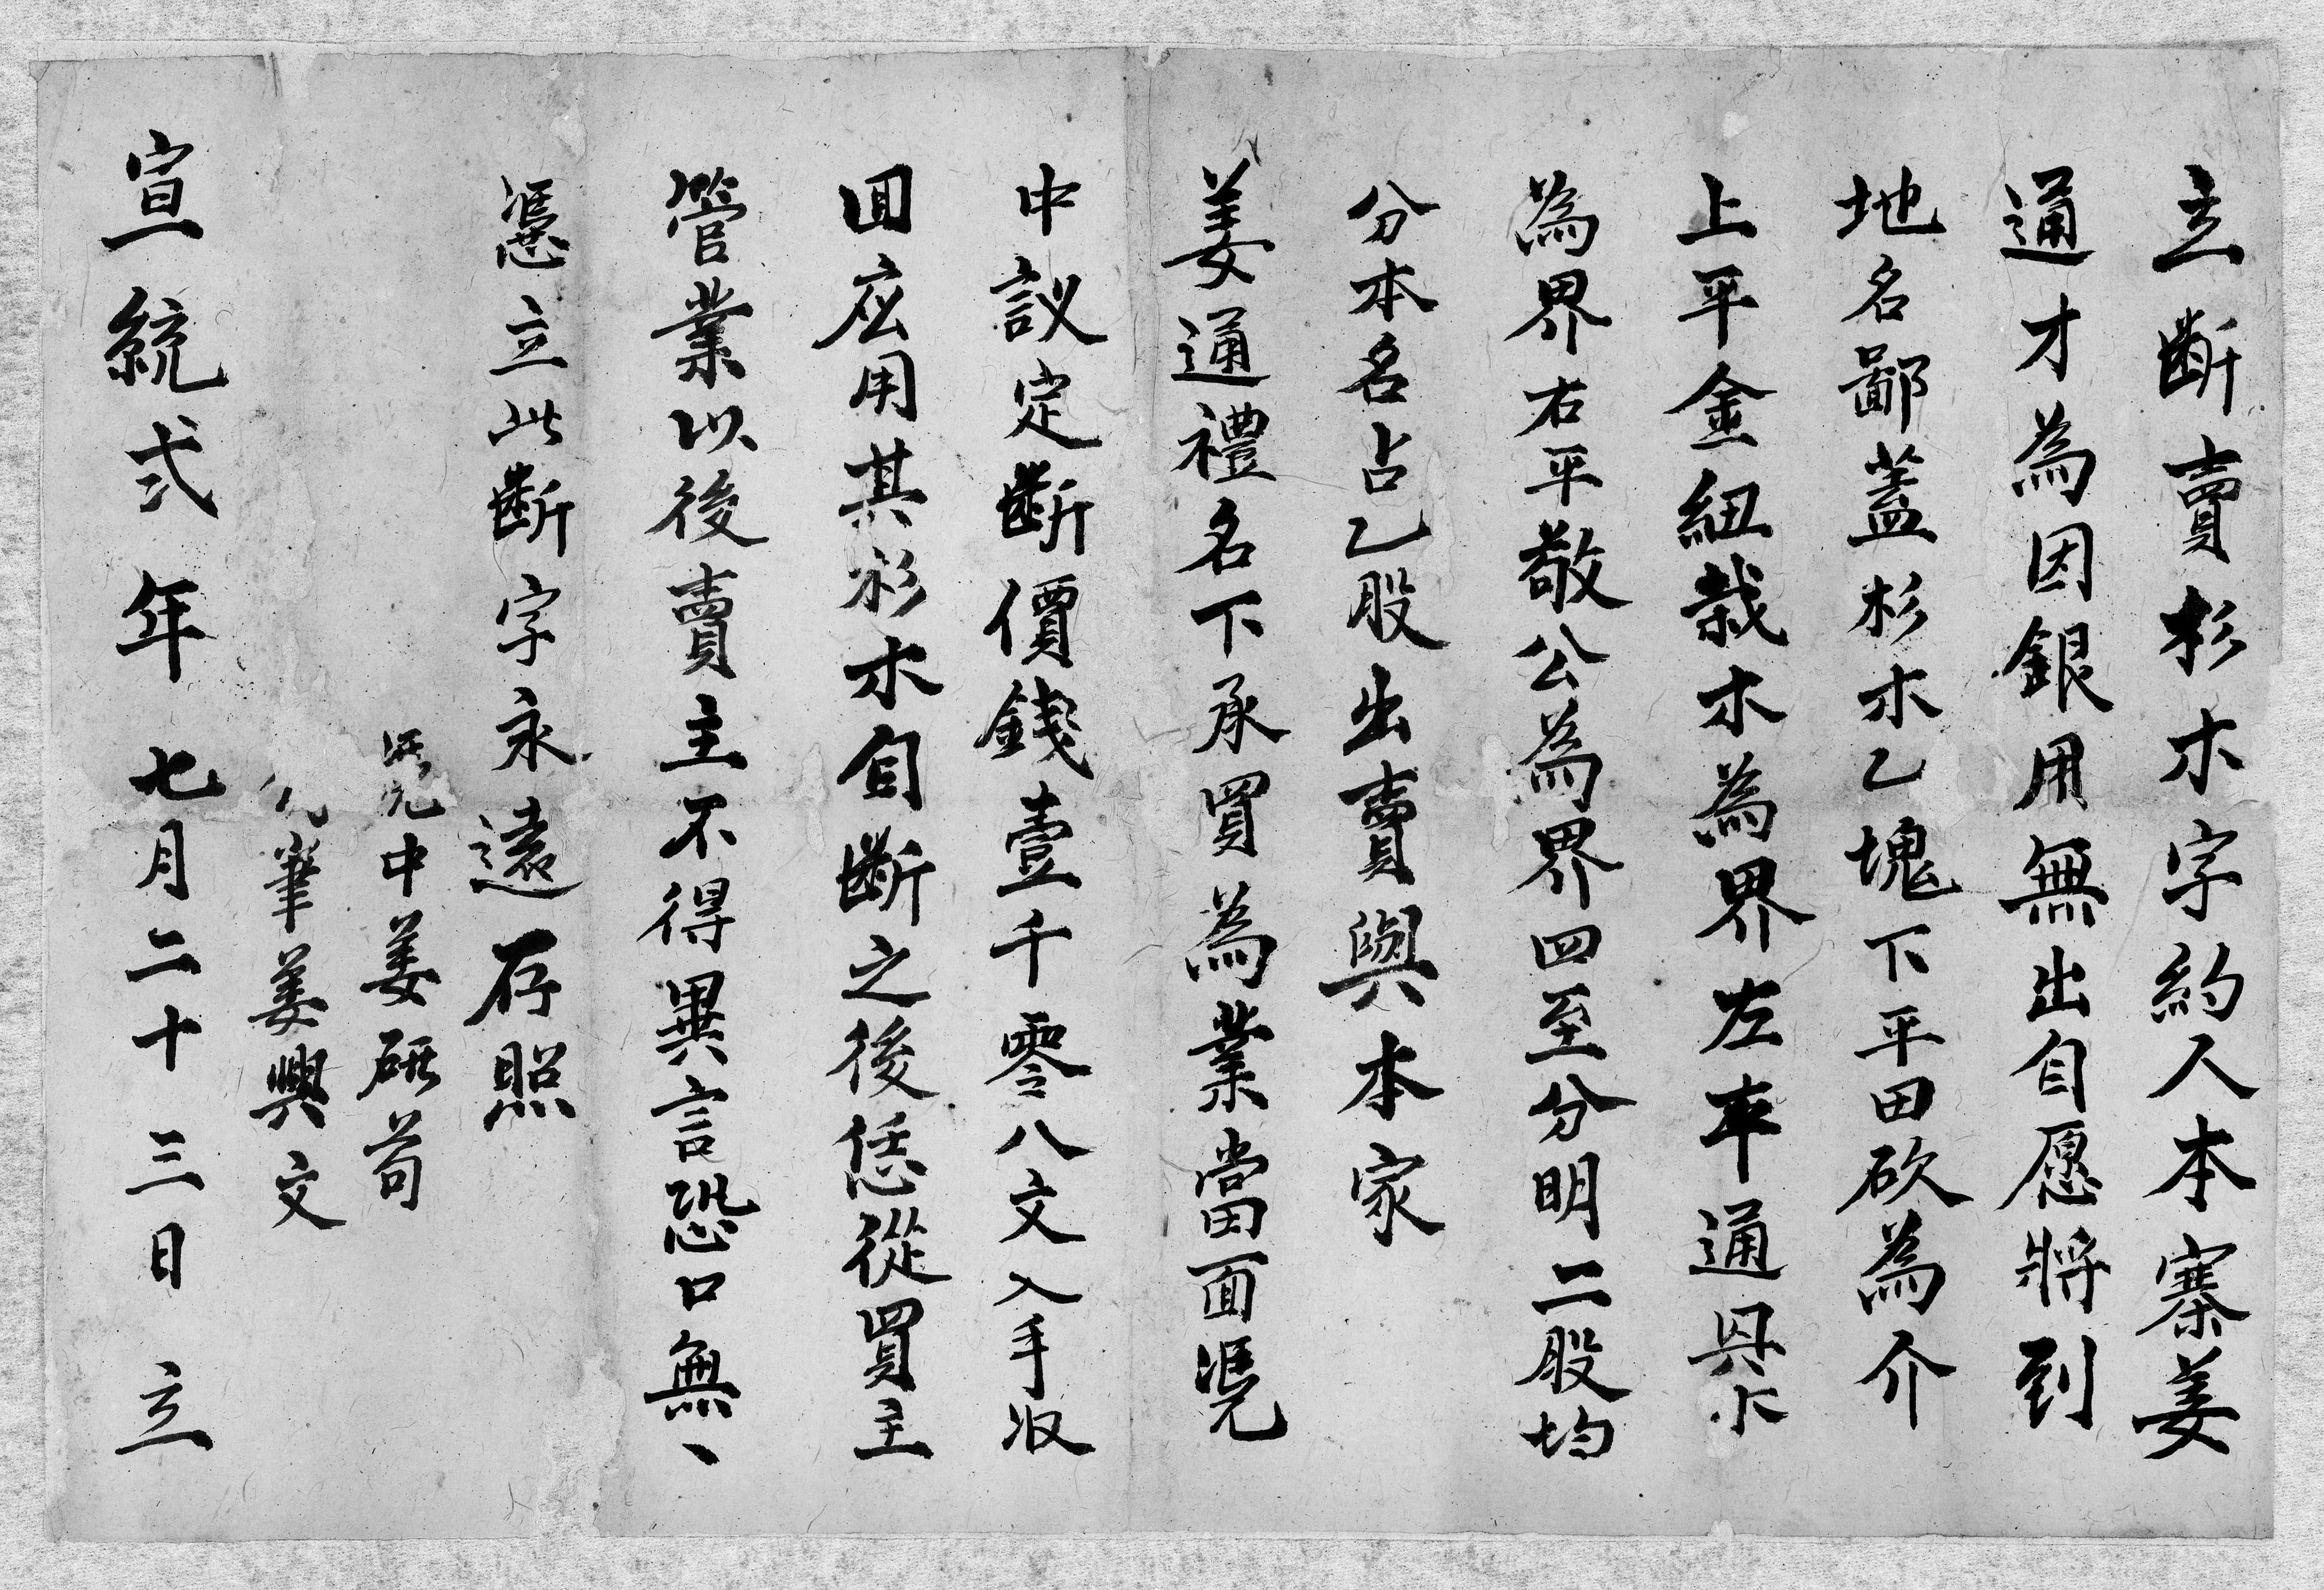 立断賣杉木字約人本寨姜
通才為因銀用無出自愿將到
地名鄙蓋杉木乙塊下平田砍為介
上平金紐栽木為界左平通具木
為界右平敬公為界四至分明二股均
分本名占乙股出賣與本家
姜通禮名下承買為業當面凴
中議定断價錢壹千零八文入手收
回应用其杉木自断之後恁從買主
管業以後賣主不得異言恐口無丶
憑立此断字永遠存照
凴中姜碩苟
代筆姜興文
宣統弍年七月二十三日立